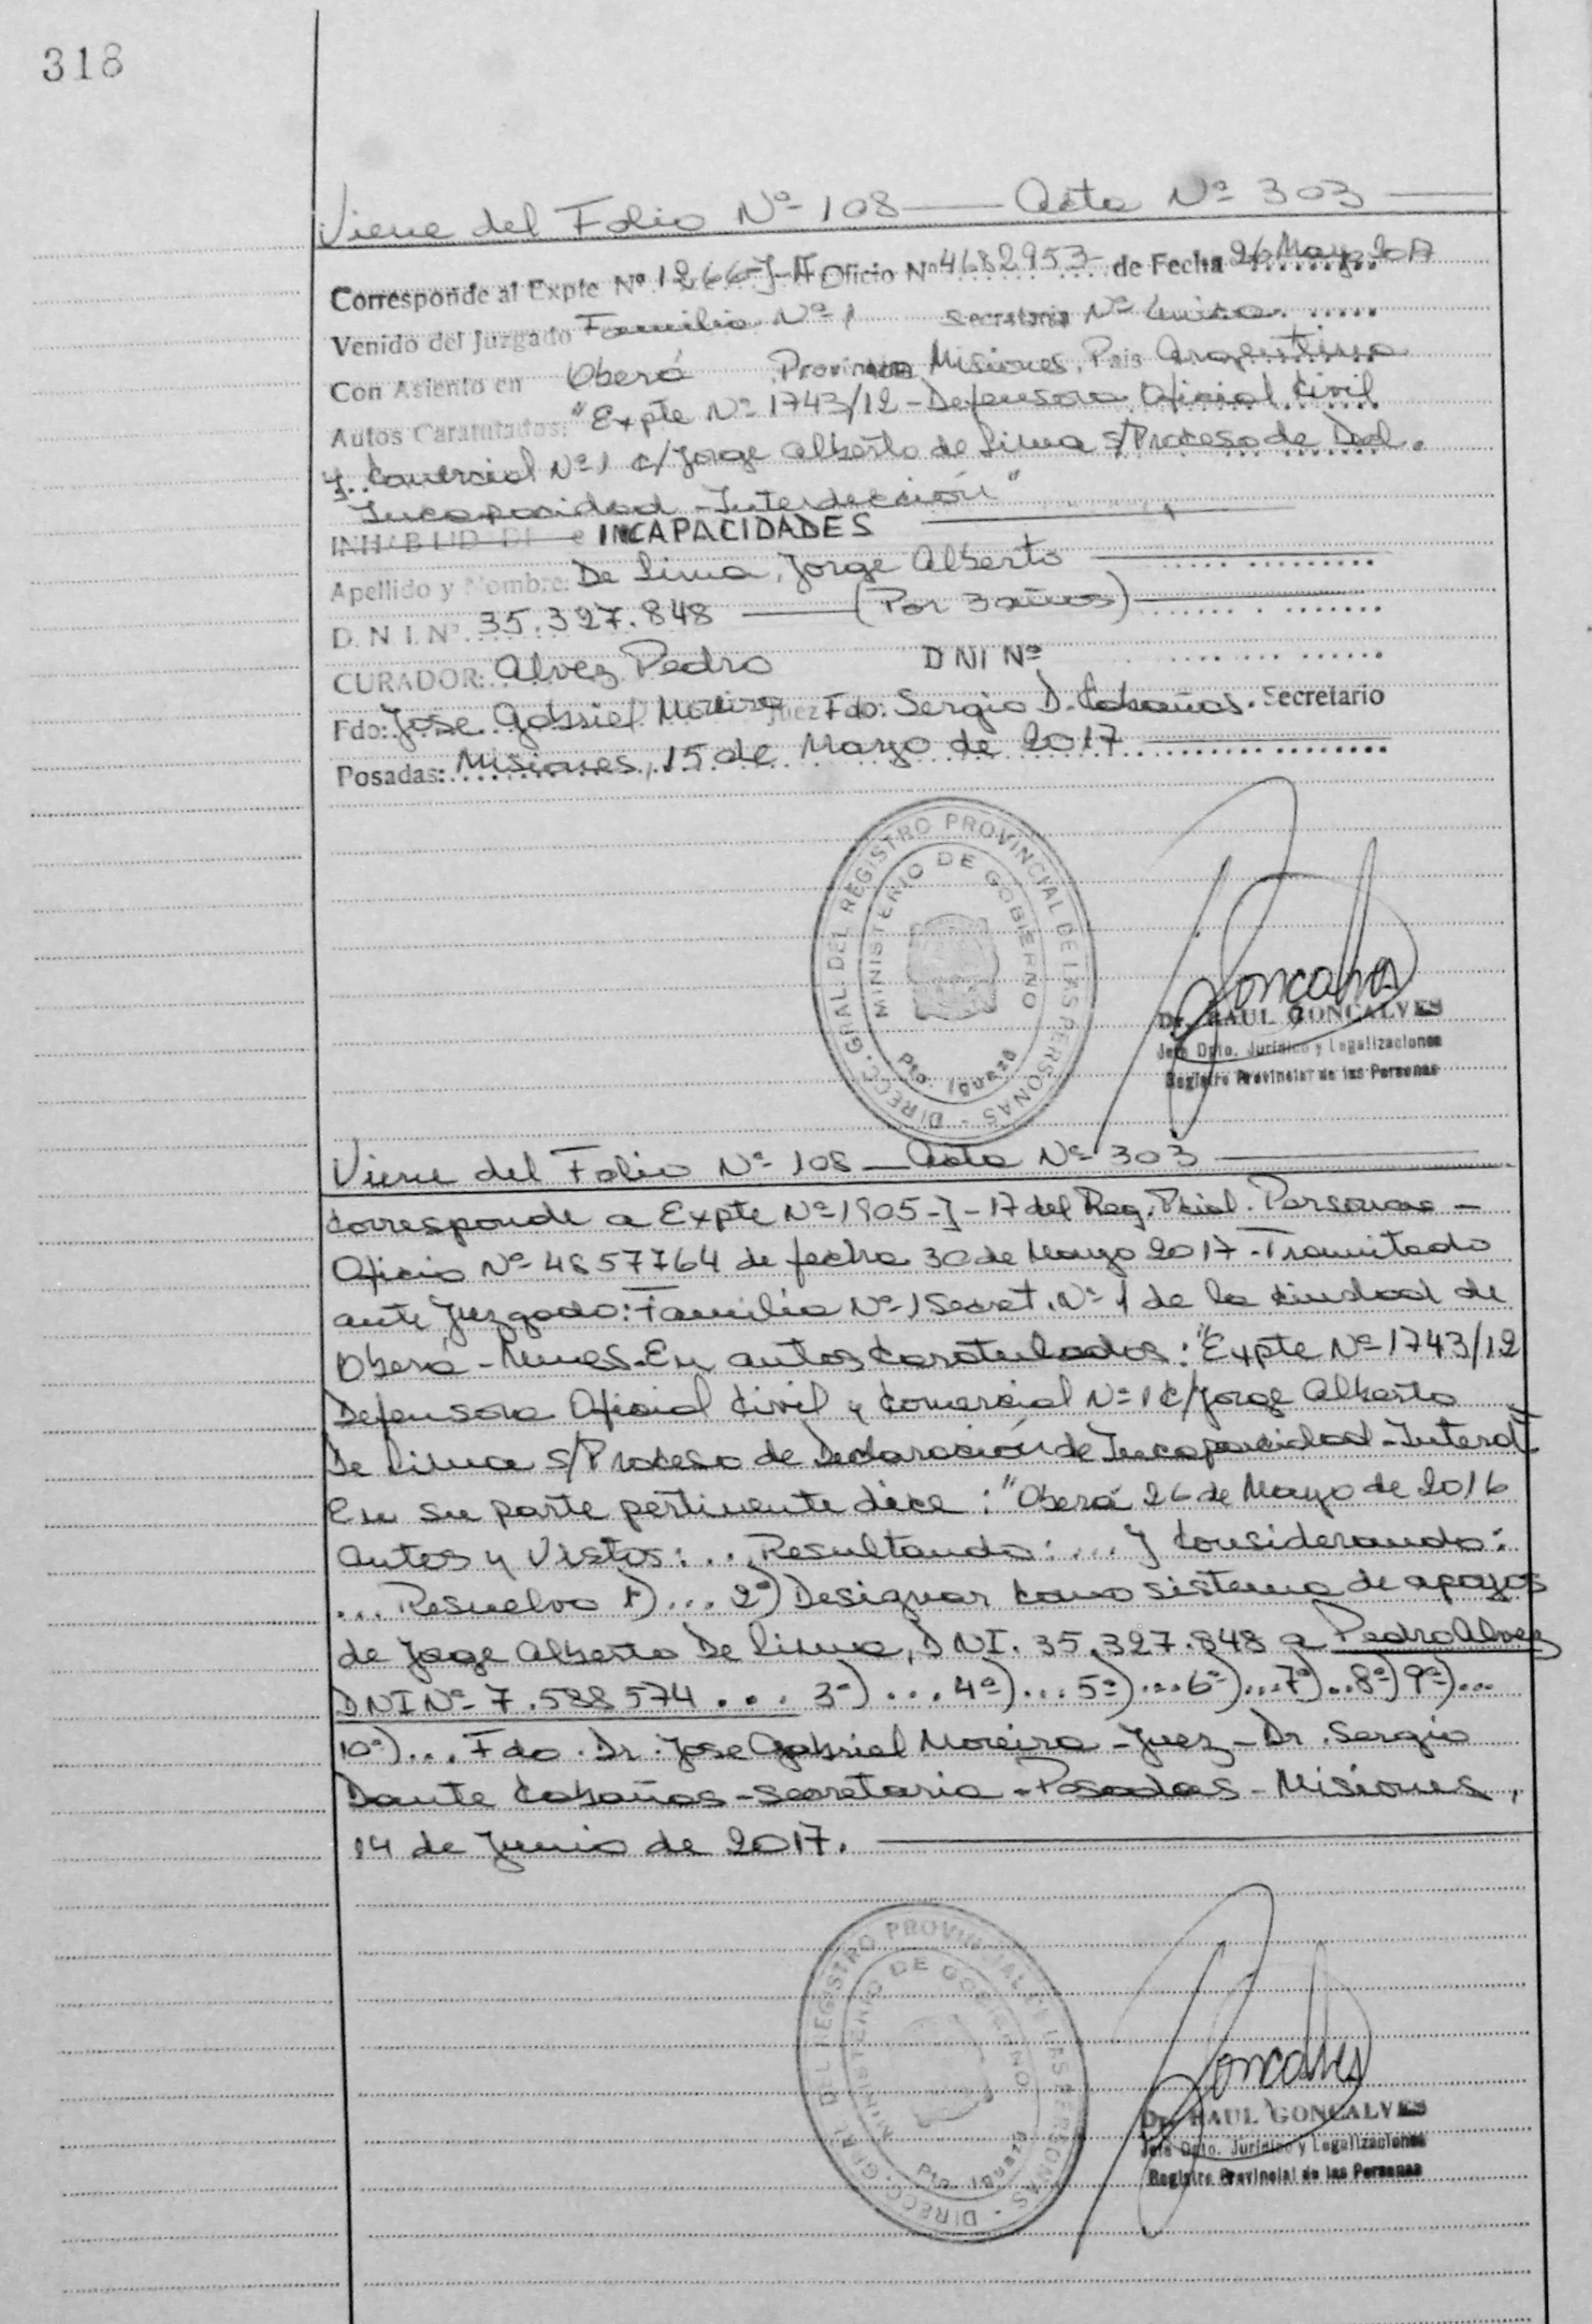 318
Viene del Folio Nº 108 — Acta Nº 303 —
Corresponde al Expte Nº 1266-J-17 Oficio Nº 4682953 de Fecha 26 Mayo 2017
Venido del Juzgado Familia Nº 1 Secretaria Nº Unica
Con Asiento en Oberá Provincia Misiones, Pais Argentina
Autos Caratulados: "Expte Nº 1743/12 - Defensora Oficial Civil
y Comercial Nº 1 c/ Jorge Alberto de Lima s/ Proceso de Decl.
Incapacidad - Interdicción"
INCAPACIDADES
Apellido y Nombre: De Lima, Jorge Alberto
D. N. I. Nº 35.327.848 — (Por 3 años) —
CURADOR: Alvez Pedro DNI Nº
Fdo: Jose Gabriel Moreira Juez Fdo: Sergio D. Cabañas. Secretario
Posadas: Misiones, 15 de Marzo de 2017
DIRECC. GRAL DEL REGISTRO PROVINCIAL DE LAS PERSONAS -
MINISTERIO DE GOBIERNO
Pto. Iguazú
Goncalves
Dr. RAUL GONCALVES
Jefe Dpto. Jurídico y Legalizaciones
Registro Provincial de las Personas
Viene del Folio Nº 108 — Acta Nº 303 —
Corresponde a Expte Nº 1905-J-17 del Reg. Pcial. Personas -
Oficio Nº 4857764 de fecha 30 de Mayo 2017 - Tramitado
ante Juzgado: Familia Nº 1 Secret. Nº 1 de la Ciudad de
Oberá - Mnes. En autos Caratulados: "Expte Nº 1743/12
Defensora Oficial Civil y Comercial Nº 1 c/ Jorge Alberto
De Lima s/ Proceso de Declaración de Incapacidad - Interd.
En su parte pertinente dice: "Oberá 26 de Mayo de 2016
Autos y Vistos: ... Resultando: ... y Considerando:
... Resuelvo 1º) ... 2º) Designar como sistema de apoyos
de Jorge Alberto De Lima, DNI. 35.327.848 a Pedro Alvez
DNI Nº 7.588574 ... 3º) ... 4º) ... 5º) ... 6º) ... 7º) .. 8º) 9º) ...
10º) ... Fdo. Dr. Jose Gabriel Moreira - Juez - Dr. Sergio
Dante Cabañas - Secretario - Posadas - Misiones,
14 de Junio de 2017.
DIRECC. GRAL DEL REGISTRO PROVINCIAL DE LAS PERSONAS -
MINISTERIO DE GOBIERNO
Pto. Iguazú
Goncalves
Dr. RAUL GONCALVES
Jefe Dpto. Jurídico y Legalizaciones
Registro Provincial de las Personas